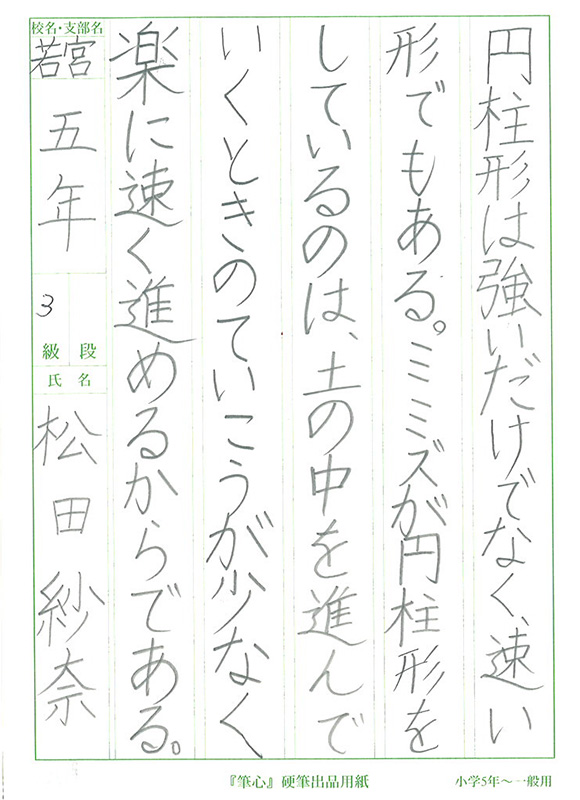 円柱形は強いだけでなく、速い
形でもある。ミミズが円柱形を
しているのは、土の中を進んで
いくときのていこうが少なく、
楽に速く進めるからである。
校名・支部名
若宮
五年
3
級 段
氏 名
松田紗奈
『筆心』硬筆出品用紙
小学5年～一般用